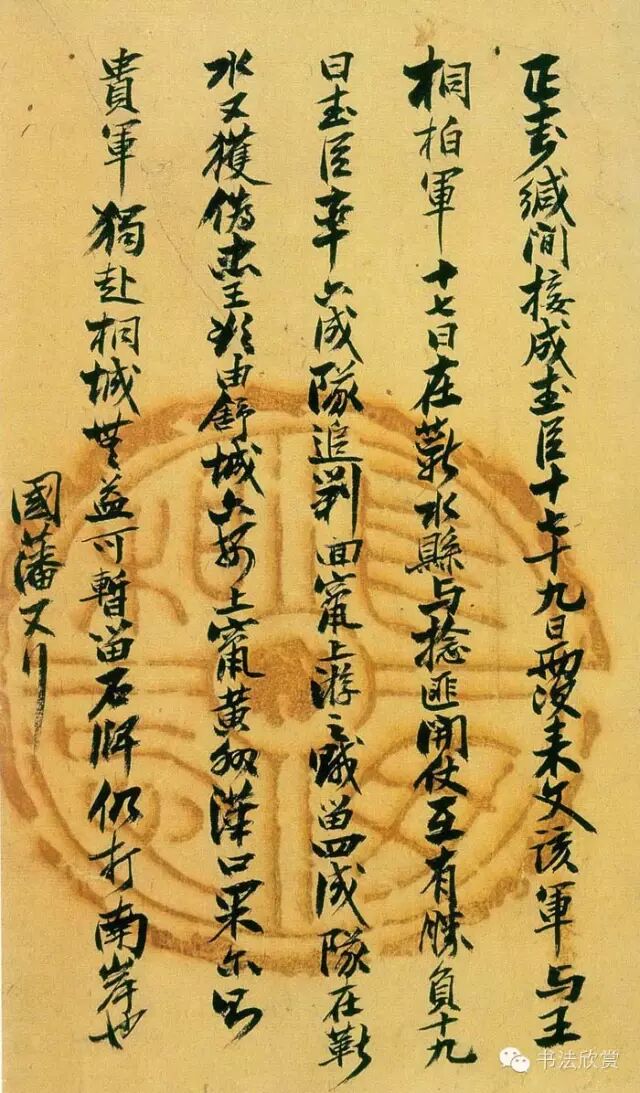 正封缄间接成武臣十七十九日两次来文该軍与王
桐柏軍十七日在蘄水縣与捻匪開仗互有勝負十九
日武臣率六成隊追剿回竄上游之賊留四成隊在蘄
水又獲偽忠王欲由舒城六安上竄黄州漢口果尔则
貴軍獨赴桐城無益可暫留石牌仍打南岸也
國藩又行
书法欣赏